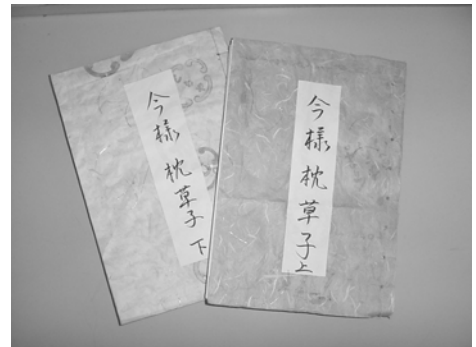 今様枕草子上
今様枕草子下